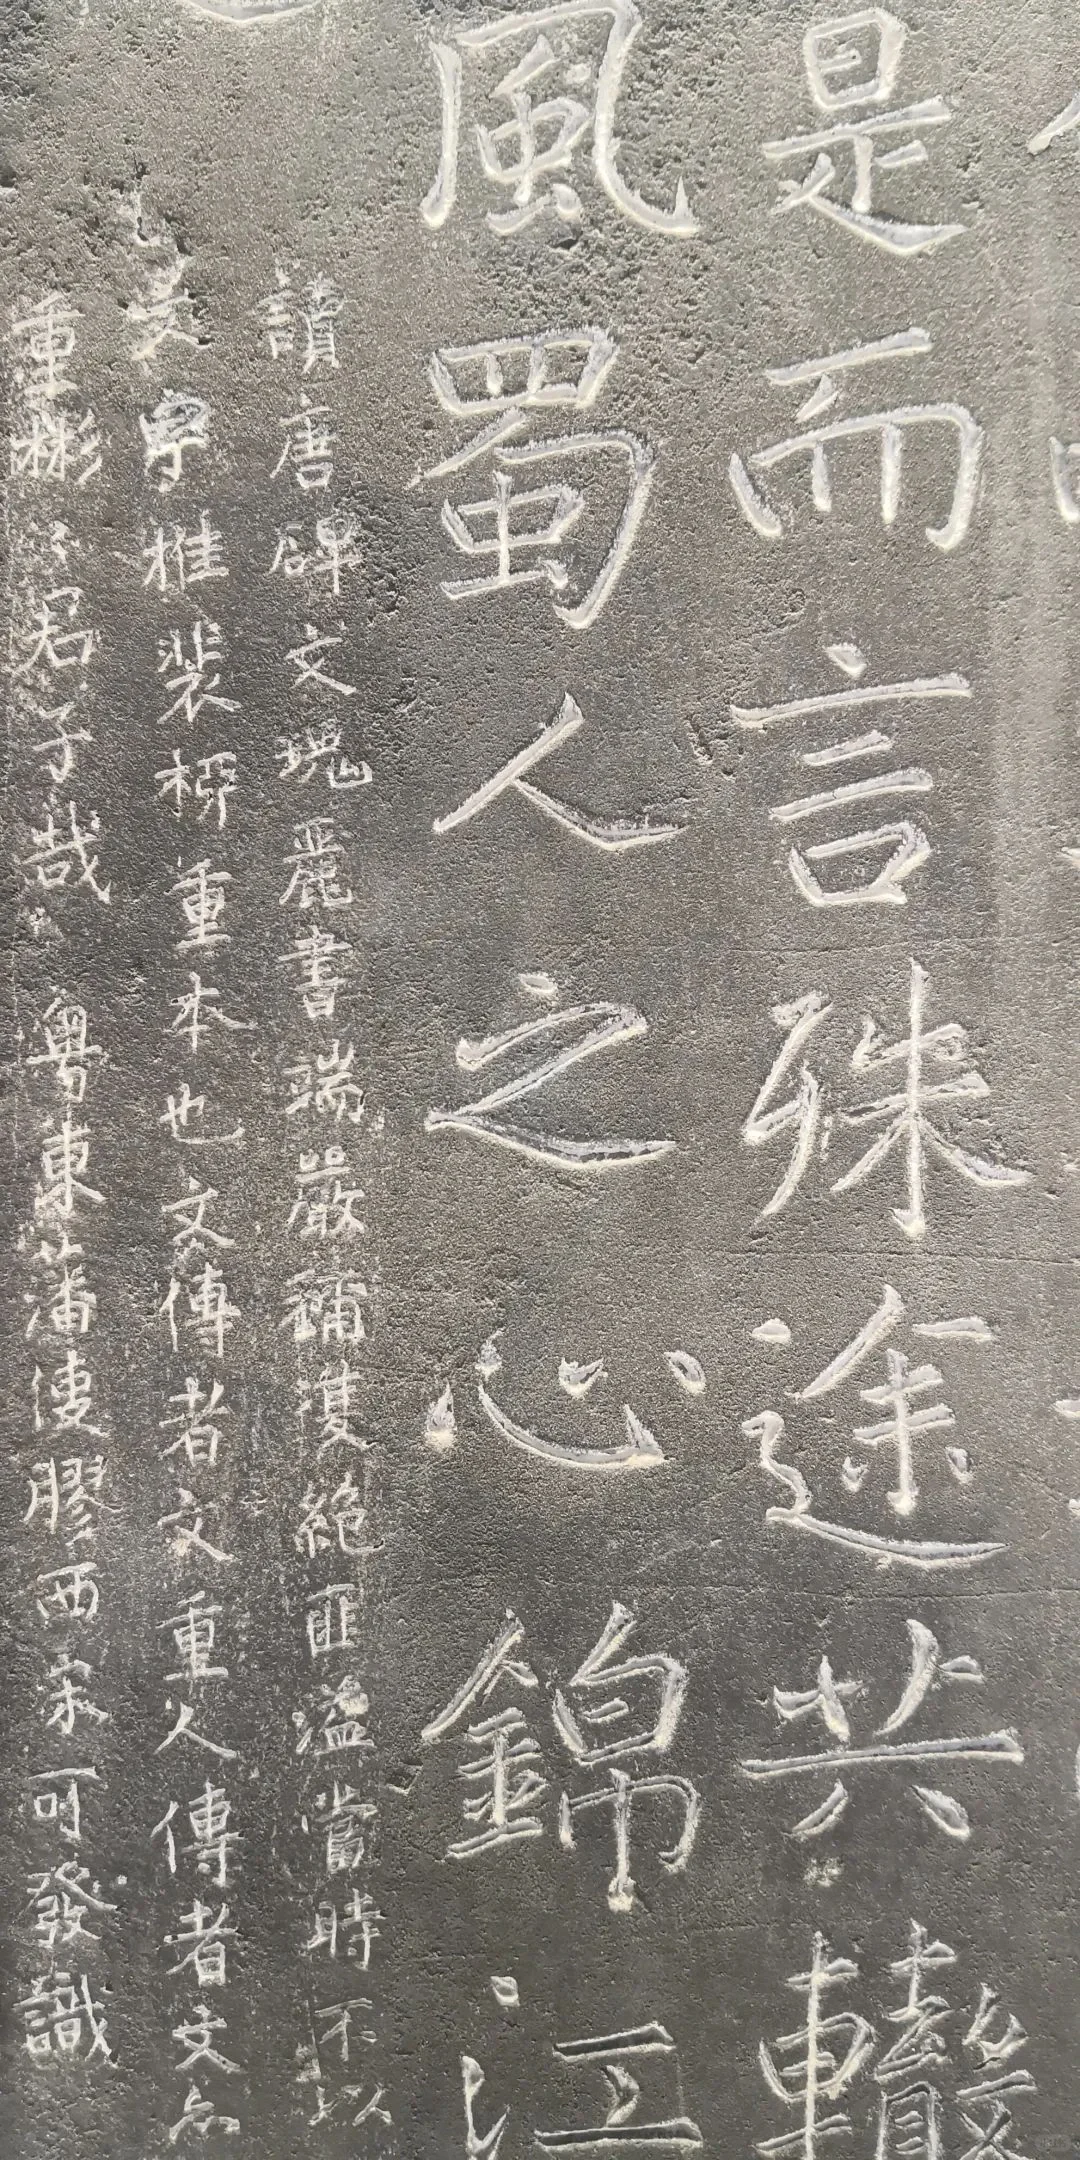 是而言殊途共轍
風蜀人之心錦江
讀唐碑文瑰麗書端嚴補雙絕匪溫當時不以
文字推裴柳重本也文傳者文重人傳者文亦
重彬君子哉粵東藩使膠西宋可發識